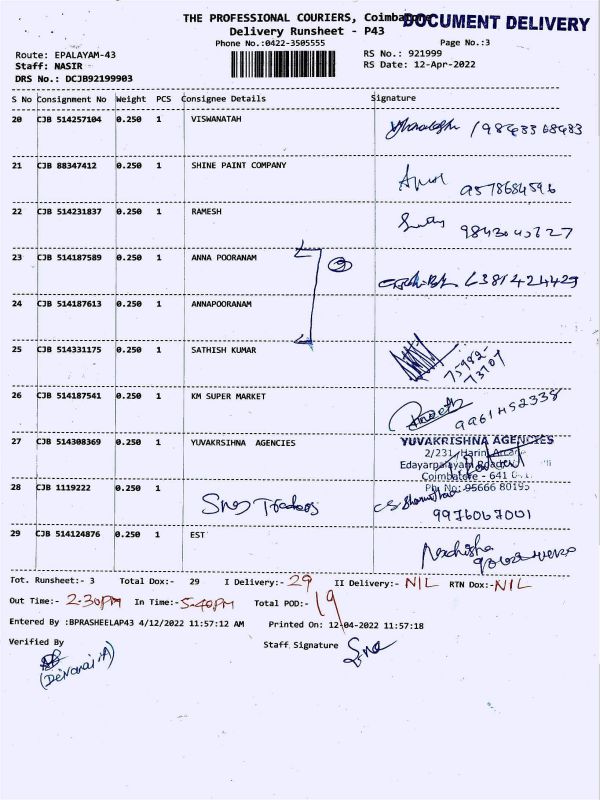 THE PROFESSIONAL COURIERS, Coimbatore
DOCUMENT DELIVERY
Delivery Runsheet - P43
Phone No.:0422-3505555
Page No.:3
Route: EPALAYAM-43
RS No.: 921999
Staff: NASIR
RS Date: 12-Apr-2022
DRS No.: DCJB92199903
S No Consignment No Weight PCS Consignee Details Signature
20 CJB 514257104 0.250 1 VISWANATAH
21 CJB 88347412 0.250 1 SHINE PAINT COMPANY
9578684596
22 CJB 514231837 0.250 1 RAMESH
23 CJB 514187589 0.250 1 ANNA POORANAM
6381424429
24 CJB 514187613 0.250 1 ANNAPOORANAM
25 CJB 514331175 0.250 1 SATHISH KUMAR
75982-
73707
26 CJB 514187541 0.250 1 KM SUPER MARKET
9961452338
27 CJB 514308369 0.250 1 YUVAKRISHNA AGENCIES
YUVAKRISHNA AGENCIES
2/231, Harini
Edayarpalayam
Coimbatore - 641
Ph: No: 95666 80195
28 CJB 1119222 0.250 1 Traders
9976067001
29 CJB 514124876 0.250 1 EST
Tot. Runsheet:- 3 Total Dox:- 29 I Delivery:- 29 II Delivery:- NIL RTN Dox:- NIL
Out Time:- 2.30PM In Time:- 5-40PM Total POD:- 19
Entered By :BPRASHEELAP43 4/12/2022 11:57:12 AM Printed On: 12-04-2022 11:57:18
Verified By
Staff Signature